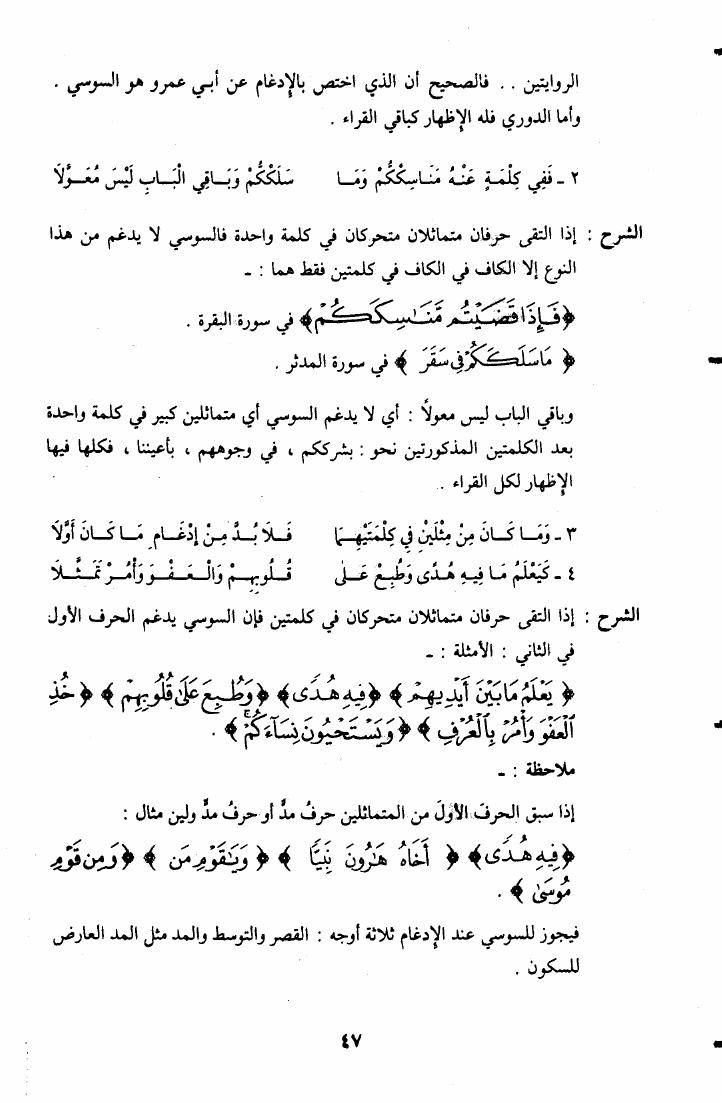 الروايتين . . فالصحيح أن الذي اختص بالإدغام عن أبي عمرو هو السوسي .
وأما الدوري فله الإظهار كباقي القراء .
٢ - فَفِي كِلْمَةٍ عَنْهُ مَنَاسِكَكُّمْ وَمَا سَلَكَكُّمْ وَبَاقِي الْبَابِ لَيْسَ مُعَوَّلَا
الشرح : إذا التقى حرفان متماثلان متحركان في كلمة واحدة فالسوسي لا يدغم من هذا
النوع إلا الكاف في الكاف في كلمتين فقط هما : -
﴿فَإِذَا قَضَيْتُم مَّنَاسِكَكُمْ﴾ في سورة البقرة .
﴿ مَا سَلَكَكُمْ فِي سَقَرَ ﴾ في سورة المدثر .
وباقي الباب ليس معولاً : أي لا يدغم السوسي أي متماثلين كبير في كلمة واحدة
بعد الكلمتين المذكورتين نحو : بشرككم ، في وجوههم ، بأعيننا ، فكلها فيها
الإظهار لكل القراء .
٣ - وَمَا كَانَ مِنْ مِثْلَيْنِ فِي كِلْمَتَيْهِمَا فَلَا بُدَّ مِنْ إِدْغَامِ مَا كَانَ أَوَّلَا
٤ - كَيَعْلَمُ مَا فِيهِ هُدًى وَطُبِعْ عَلَى قُلُوبِهِمْ وَالْعَفْوَ وَأْمُرْ تَمَثَّلَا
الشرح : إذا التقى حرفان متماثلان متحركان في كلمتين فإن السوسي يدغم الحرف الأول
في الثاني : الأمثلة : -
﴿ يَعْلَمُ مَا بَيْنَ أَيْدِيهِمْ ﴾ ﴿فِيهِ هُدًى﴾ ﴿وَطُبِعَ عَلَىٰ قُلُوبِهِمْ ﴾ ﴿ خُذِ
ٱلْعَفْوَ وَأْمُرْ بِٱلْعُرْفِ ﴾ ﴿ وَيَسْتَحْيُونَ نِسَآءَكُمْ ﴾ .
ملاحظة : -
إذا سبق الحرفَ الأولَ من المتماثلين حرفُ مدٍّ أو حرفُ مدٍّ ولين مثال :
﴿فِيهِ هُدًى﴾ ﴿ أَخَاهُ هَارُونَ نَبِيًّا ﴾ ﴿ وَيَٰقَوْمِ مَن ﴾ ﴿ وَمِن قَوْمِ
مُوسَىٰ ﴾ .
فيجوز للسوسي عند الإدغام ثلاثة أوجه : القصر والتوسط والمد مثل المد العارض
للسكون .
٤٧